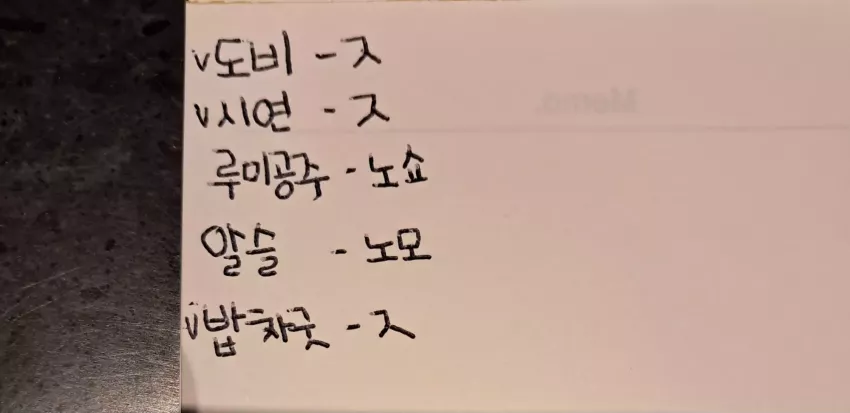 v도비 - ㅈ
v시연 - ㅈ
루미공주 - 노쇼
알슬 - 노모
v밥차굿 - ㅈ